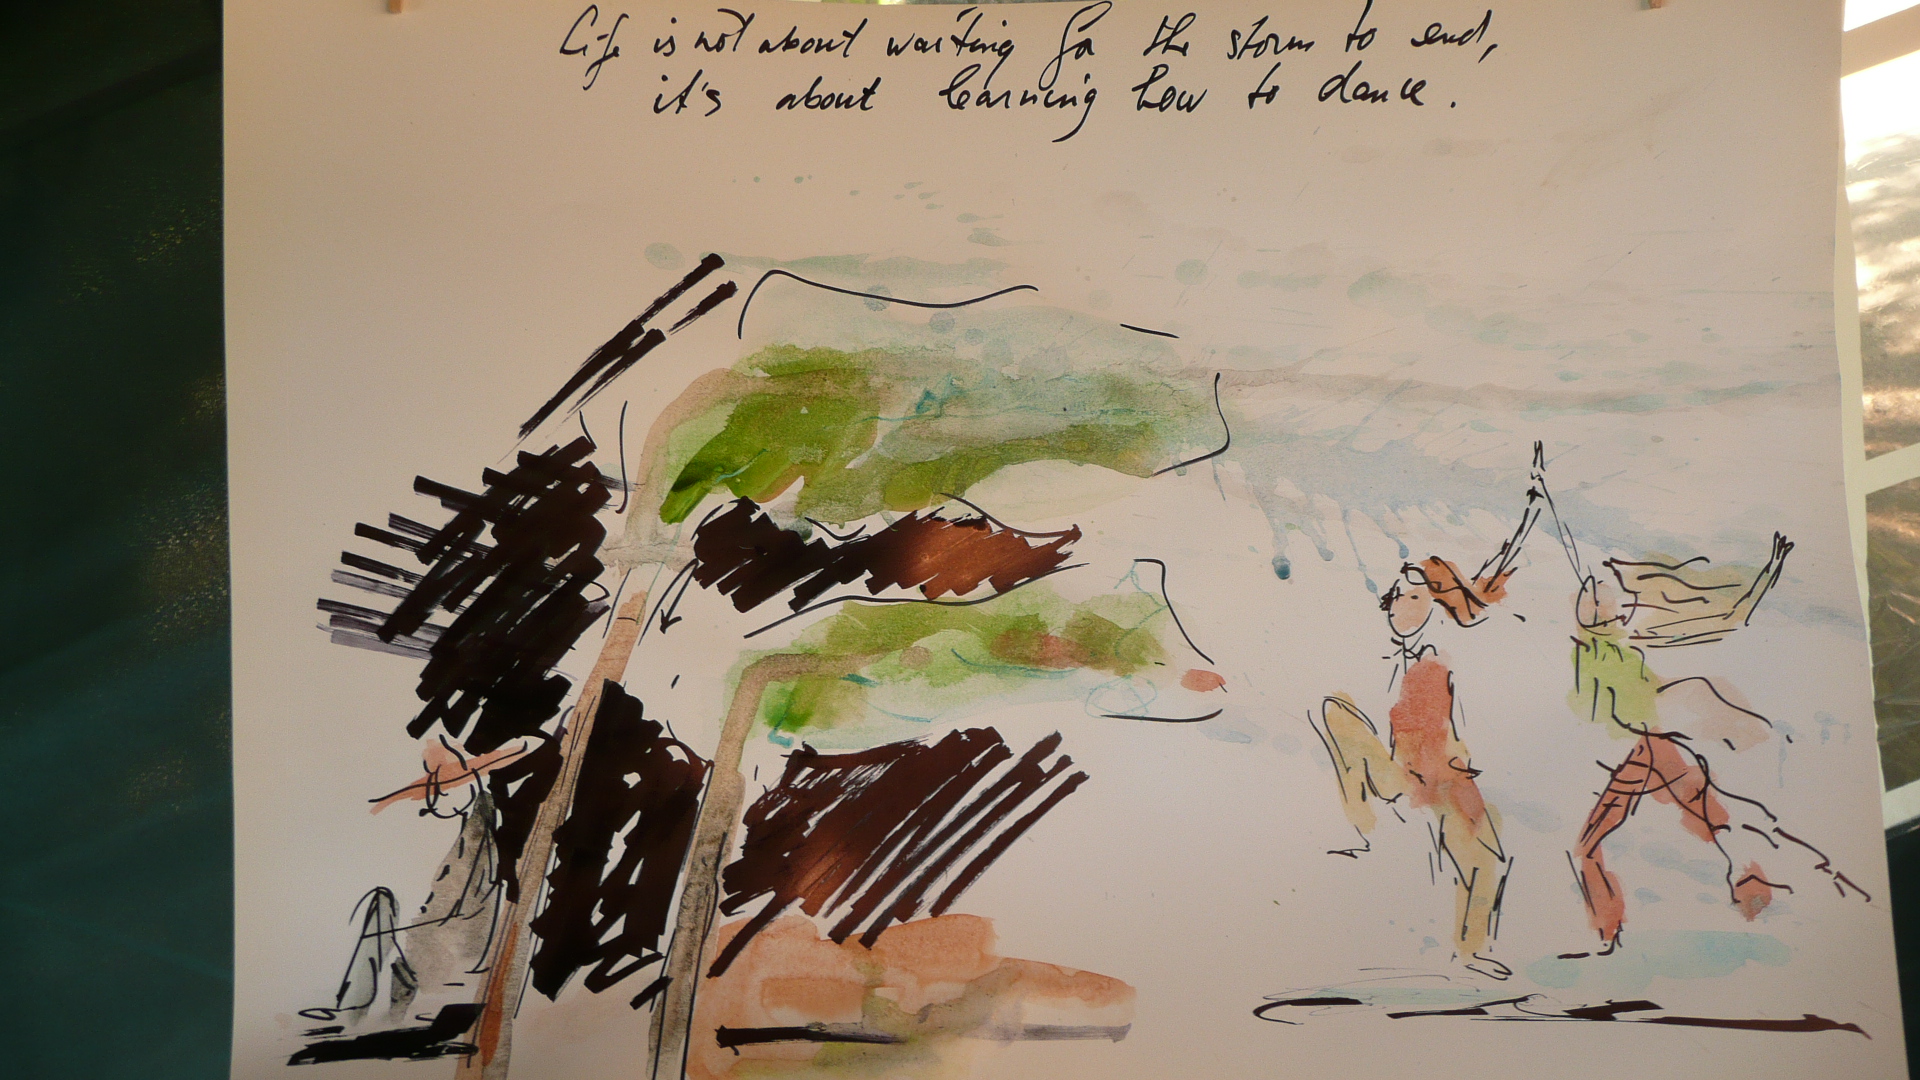 Life is not about waiting for the storm to end,
it's about learning how to dance.